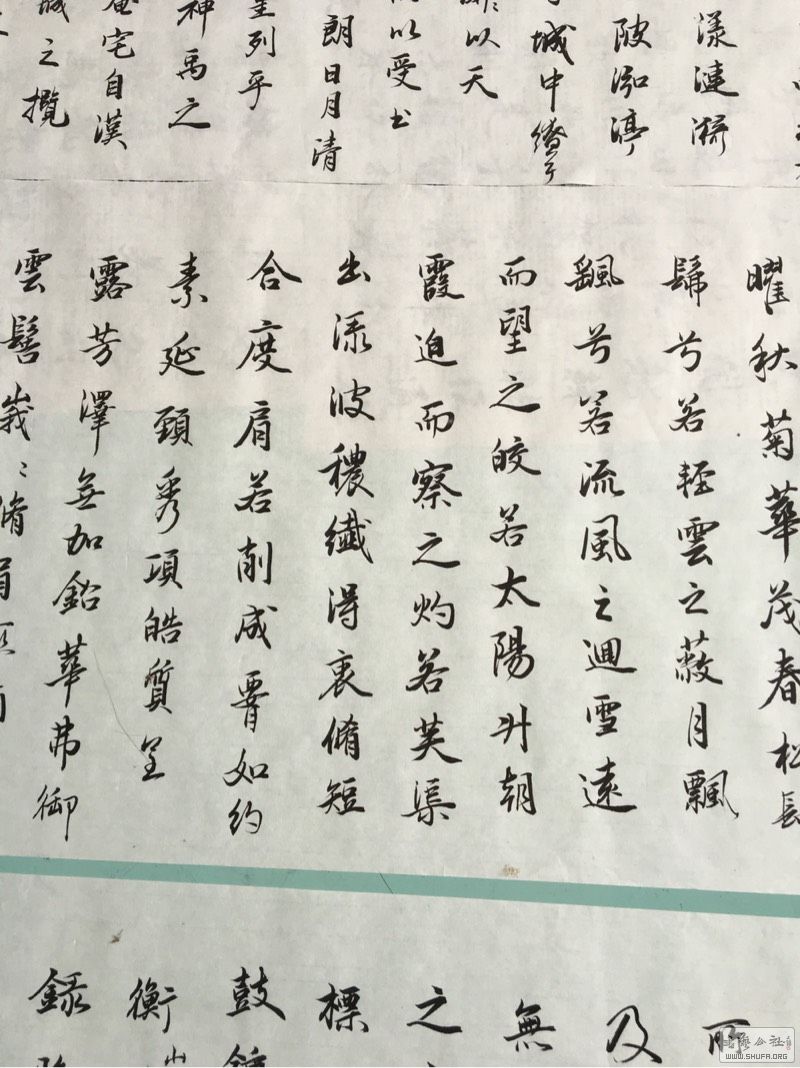 漾漣漪
陂泓渟
城中
以天
以受
朗日月清
列乎
神禹之
宅自漢
城之攬
曜秋菊華茂春松
髴兮若輕雲之蔽月飄
飖兮若流風之迴雪遠
而望之皎若太陽升朝
霞迫而察之灼若芙渠
出渌波穠纖得衷脩短
合度肩若削成腰如約
素延頸秀項皓質呈
露芳澤無加鉛華弗御
雲髻峩〻脩眉
所
及
無
之
標
鼓
衡山
錄
书法公社
WWW.SHUFA.ORG